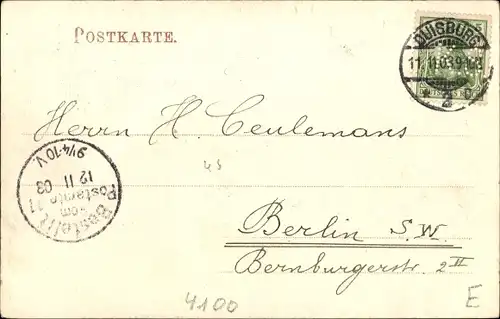 POSTKARTE.
DUISBURG
11.11.03.9-10N
* 2 b.
Herrn H. Ceulemans
4S
Bestellt
vom
Postamte 11
12 11 03
9¼-10 V.
Berlin S.W.
Bernburgerstr. 2 II
4100
E